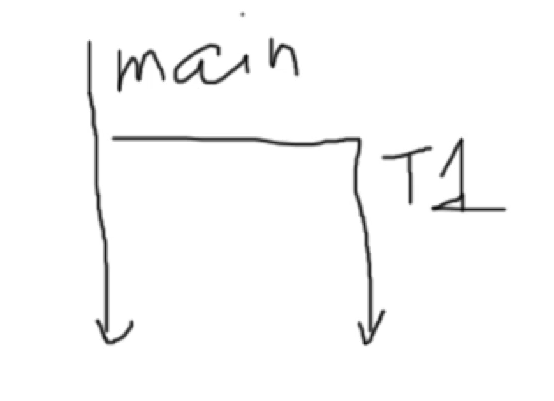 main
T1